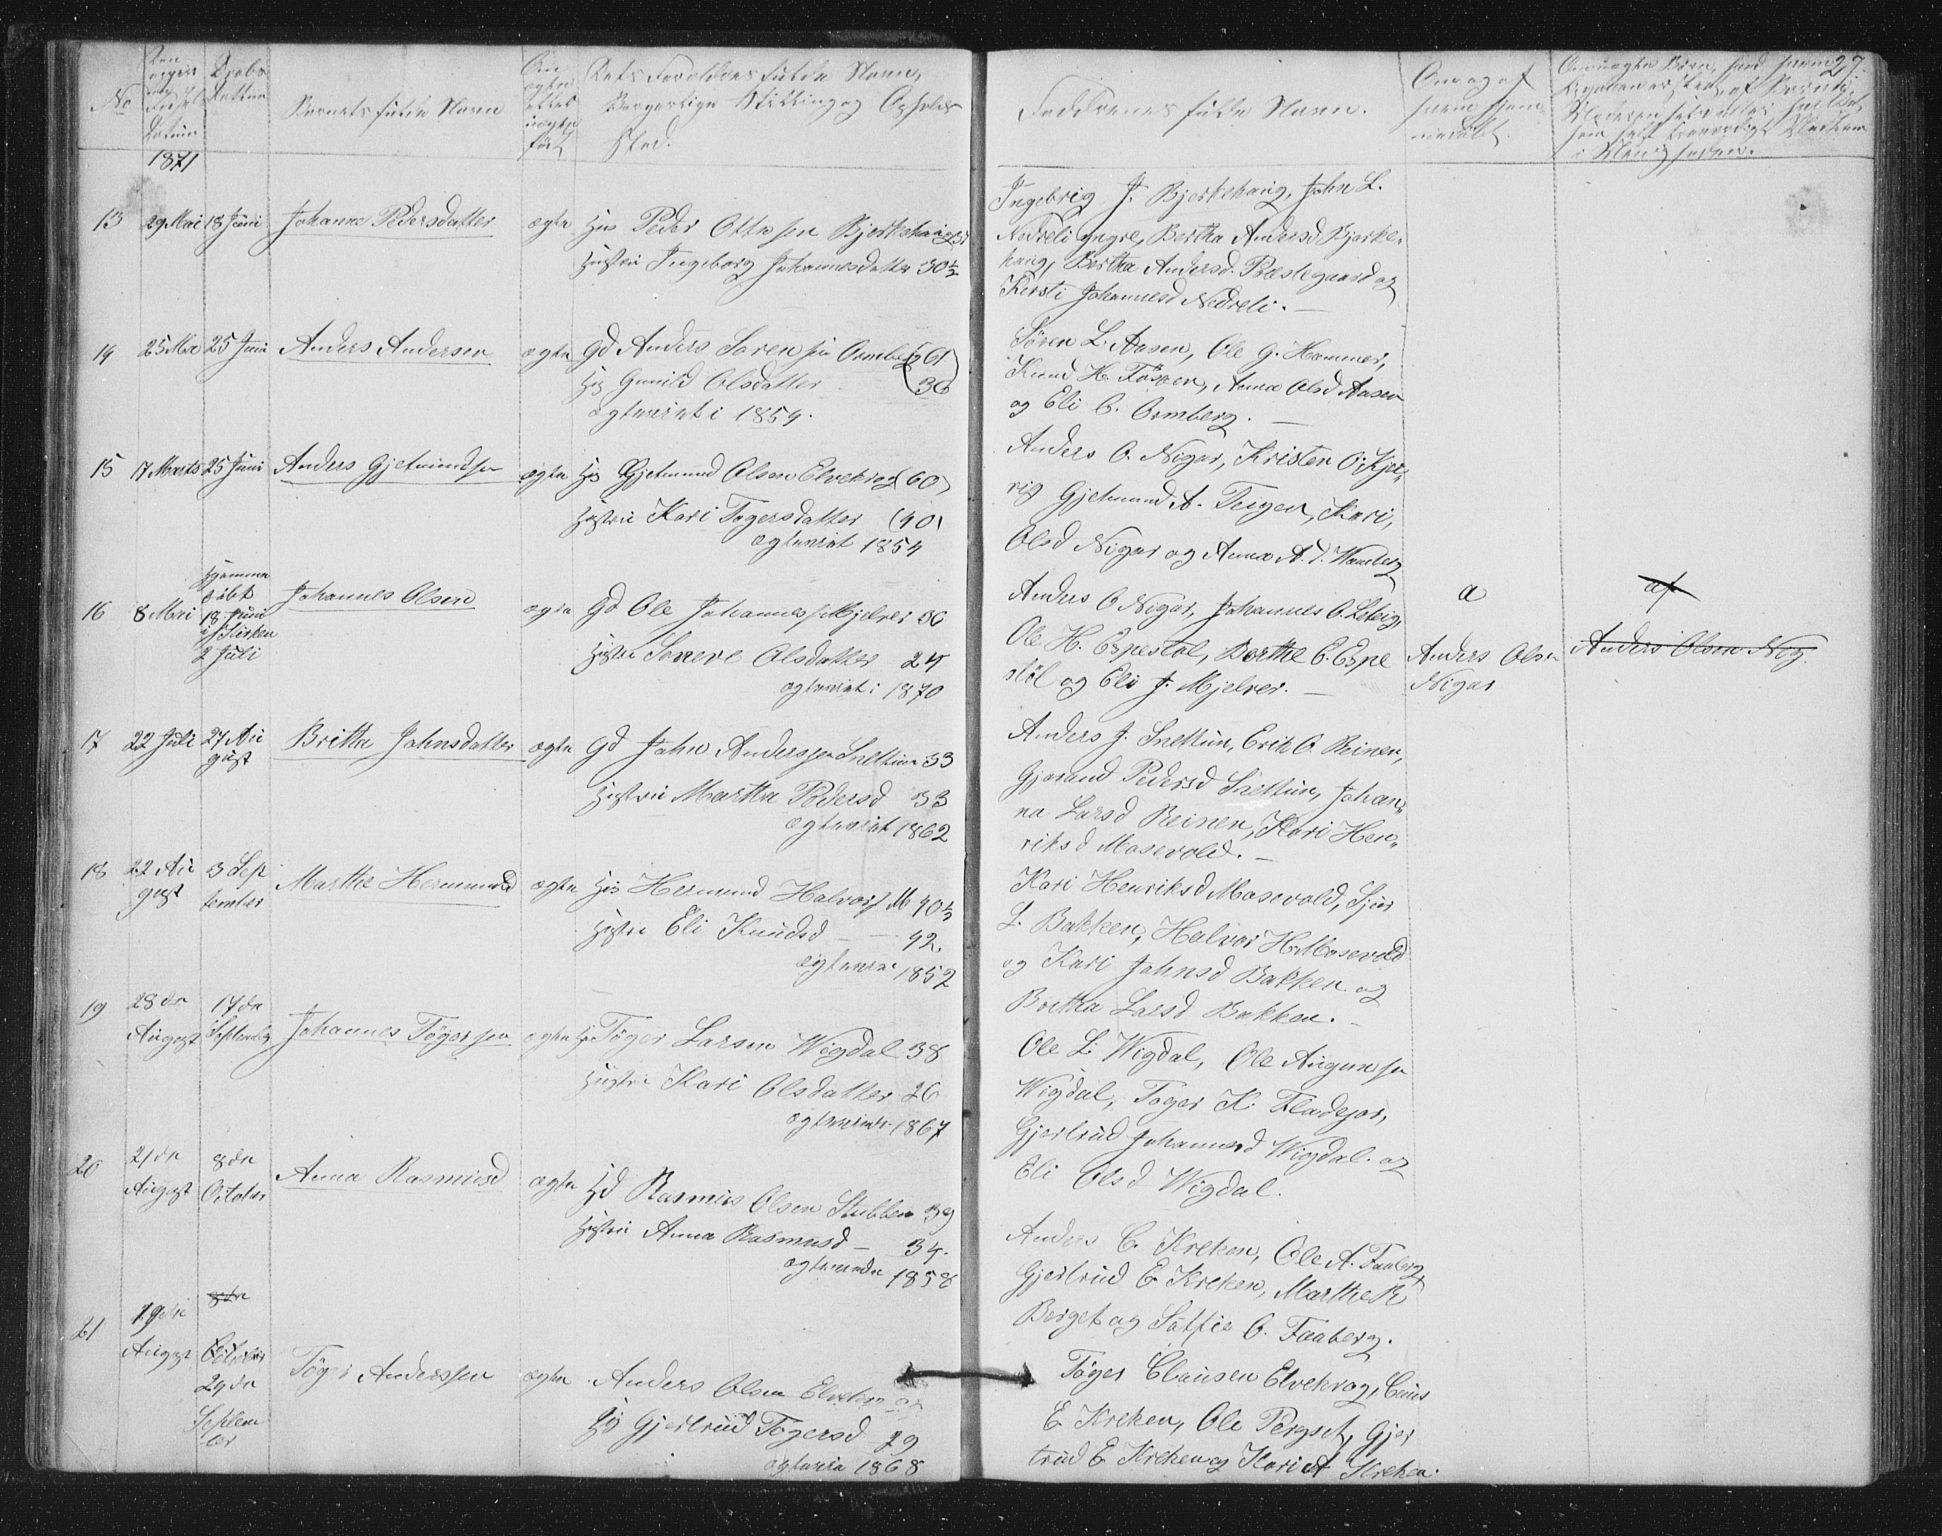 27.
No
Daabs
Datum
Barnets fulde Navn
Om
ægte
eller
uægte
født
Rets Foreldres fulde Navn,
Borgerlige Stilling og Opholds
sted.
Faddrenes fulde Navn.
Om og af
hvem hjem
medøbt.
1871
13 29 Mai 18 Juni Johanne Pedersdatter ægte Hus Peder Ottesen Bjerkehaug
Hustru Ingeborg Johannesdatter 30½
Ingebrig J. Bjerkehaug, John L.
Nedreli yngre, Bertha Andersd Bjerke-
haug, Bertha Andersd. Bæstegaard og
Kersti Johannesd Nedreli. —
14 25 Mai 25 Juni Anders Andersen ægte Gd Anders Sørensen Ormberg 61
Hs Gunild Olsdatter 36
ægteviet i 1859.
Søren L. Aasen, Ole G. Hammer,
Knud H. Fossen, Anna Olsd Aasen
og Eli O. Ormberg. —
15 17 Marts 25 Juni Anders Gjetmundsen ægte Hs Gjetmund Olsen Elvekrog (60)
Hustru Kari Tøgersdatter (40)
ægteviet 1854
Anders O. Nigar, Kristen O. Kjer-
vig Gjetmund A. Teigen, Kari,
Olsd Nigar og Anna A. D. Wamberg
16 8 Mai Hjemme
døbt
18 Juni
i Kirken
2 Juli
Johannes Olsen ægte Gd Ole Johannessen Mjelver 30
Hustru Severe Olsdatter 24
ægteviet i 1870
Anders O Nigar, Johannes O. Leteig,
Ole H. Espestøl, Berthe E. Espe
støl og Eli J. Mjelver. —
a
Anders Olsen
Nigar
af
Anders Olsen Nig.
17 22 Juli 27 Au
gust
Britha Johnsdatter ægte Gd John Anderssen Snettun 33
Hustru Martha Pedersd 33
ægteviet 1862
Anders J. Snettun, Erik O. Reinen,
Gjørand Pedersd Snettun, Johan-
na Larsd Reinen, Kari Hen-
riksd Mosevold. —
18 22 Au
gust
3 Sep
tember
Marthe Hermundsd ægte Hs Hermund Halvors M 40½
Hustru Eli Knudsd — 42.
ægteviet 1852
Kari Henriksd Mosevold, Sjur
L. Bakken, Halvor H. Mosevold
og Kari Johnsd Bakken og
Britha Larsd Bakken. —
19 28 de
August
17 de
September
Johannes Tøgersen ægte Hs Tøger Larsen Wigdal 38
Hustru Kari Olsdatter 26
ægteviet 1867
Ole L. Wigdal, Ole Augunsen
Wigdal, Tøger K. Flodejor,
Gjertrud Johannesd Wigdal og
Eli Olsd Wigdal.
20 21 de
August
8 de
October
Anna Rasmusd ægte Gd Rasmus Olsen Stubben 39
Hustru Anna Rasmusd — 34.
ægteviede 1858
Anders C. Kreken, Ole A. Faaberg
Gjertrud E. Kreken, Marthe R
Berget og Saffie O. Faaberg.
21 19 de
August
8 de
October
24 de
Septem
ber
Tøger Anderssen ægte Anders Olsen Elvekrog
Hs Gjertrud Tøgersd 29
ægteviet 1868
Tøger Clausen Elvekrog, Claus
E. Kreken, Ole Pergset, Gjer
trud E Kreken og Kari A Kreken.